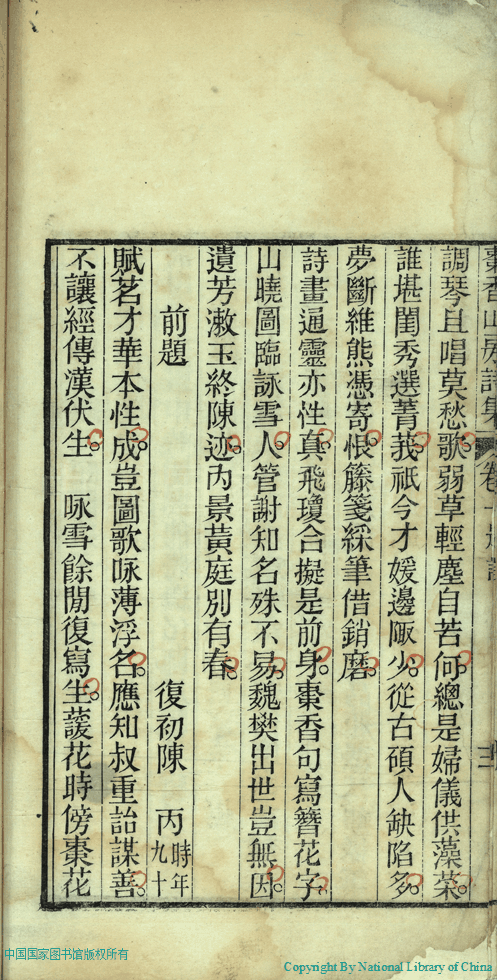 棗香山房詩集 卷十 題詩 三
調琴且唱莫愁歌弱草輕塵自苦何總是婦儀供藻菜
誰堪閨秀選菁莪祇今才媛邊陬少從古碩人缺陷多
夢斷維熊憑寄恨籐箋綵筆借銷磨
詩畫通靈亦性真飛瓊合擬是前身棗香句寫簪花字
山曉圖臨詠雪人管謝知名殊不易魏樊出世豈無因
遺芳漱玉終陳迹內景黃庭別有春
前題 復初陳 丙 時年九十
賦茗才華本性成豈圖歌咏薄浮名應知叔重詒謀善
不讓經傳漢伏生 咏雪餘閒復寫生蘐花時傍棗花
中国国家图书馆版权所有
Copyright By National Library of China